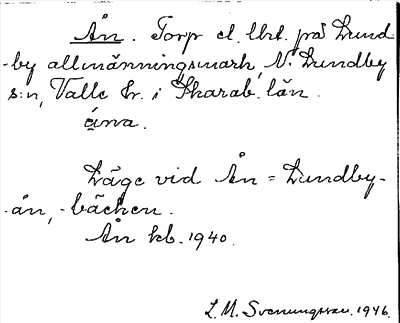 Ån. Torp el. lht. på Lund
-by allmänningsmark, N. Lundby
s:n, Valle hr. i Skarab. län.
åna.
Läge vid Ån = Lundby-
-ån, -bäcken.
Ån kb. 1940.
L. M. Svenungsson. 1946.